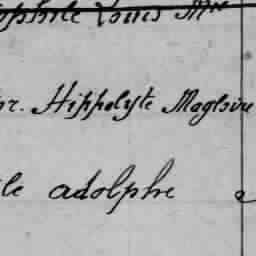 ophile Louis Mie
or. Hippolyte Magloire
le adolphe